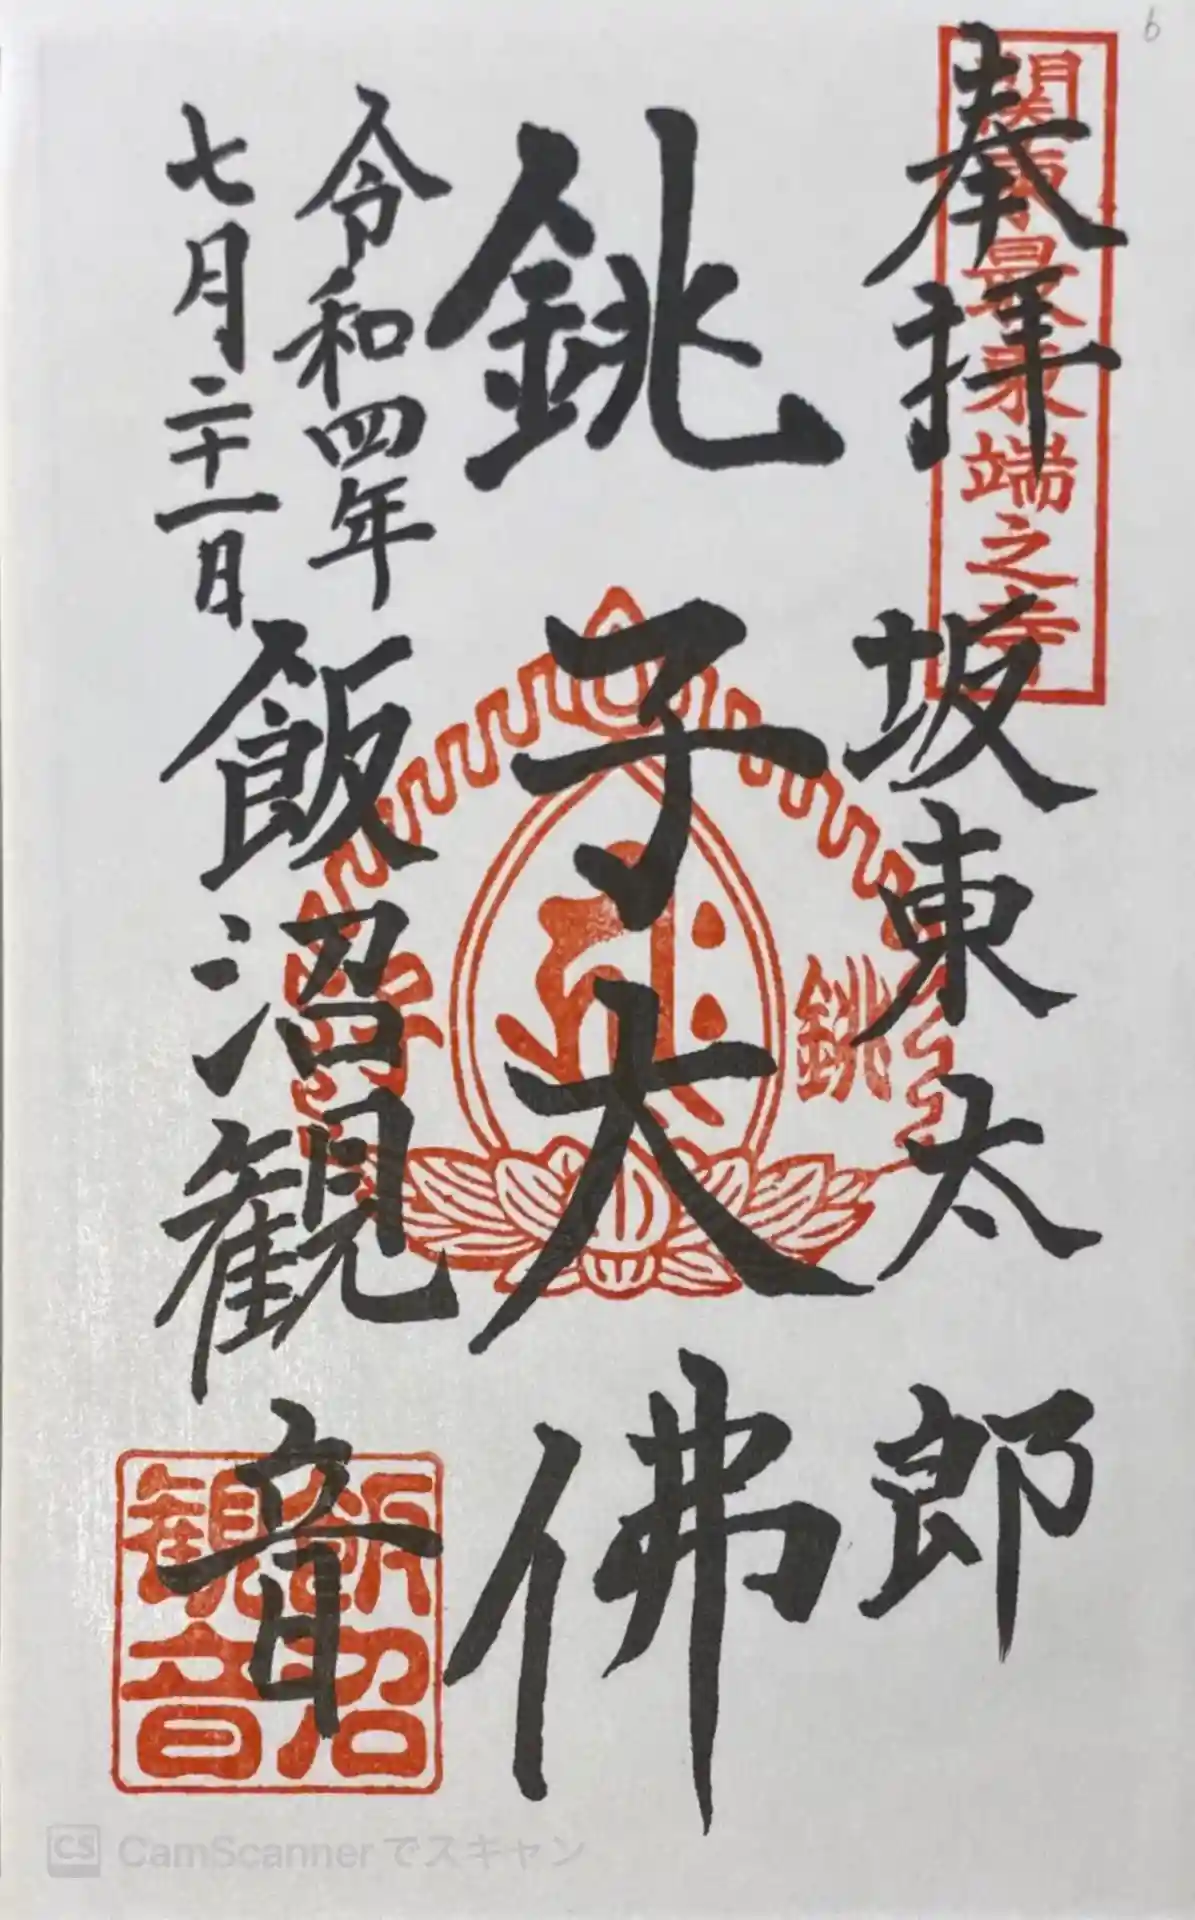 6
奉拝
関東最東端之寺
坂東太郎
銚子大佛
銚子
令和四年
七月二十一日
飯沼観音
飯沼観音
CS CamScannerでスキャン